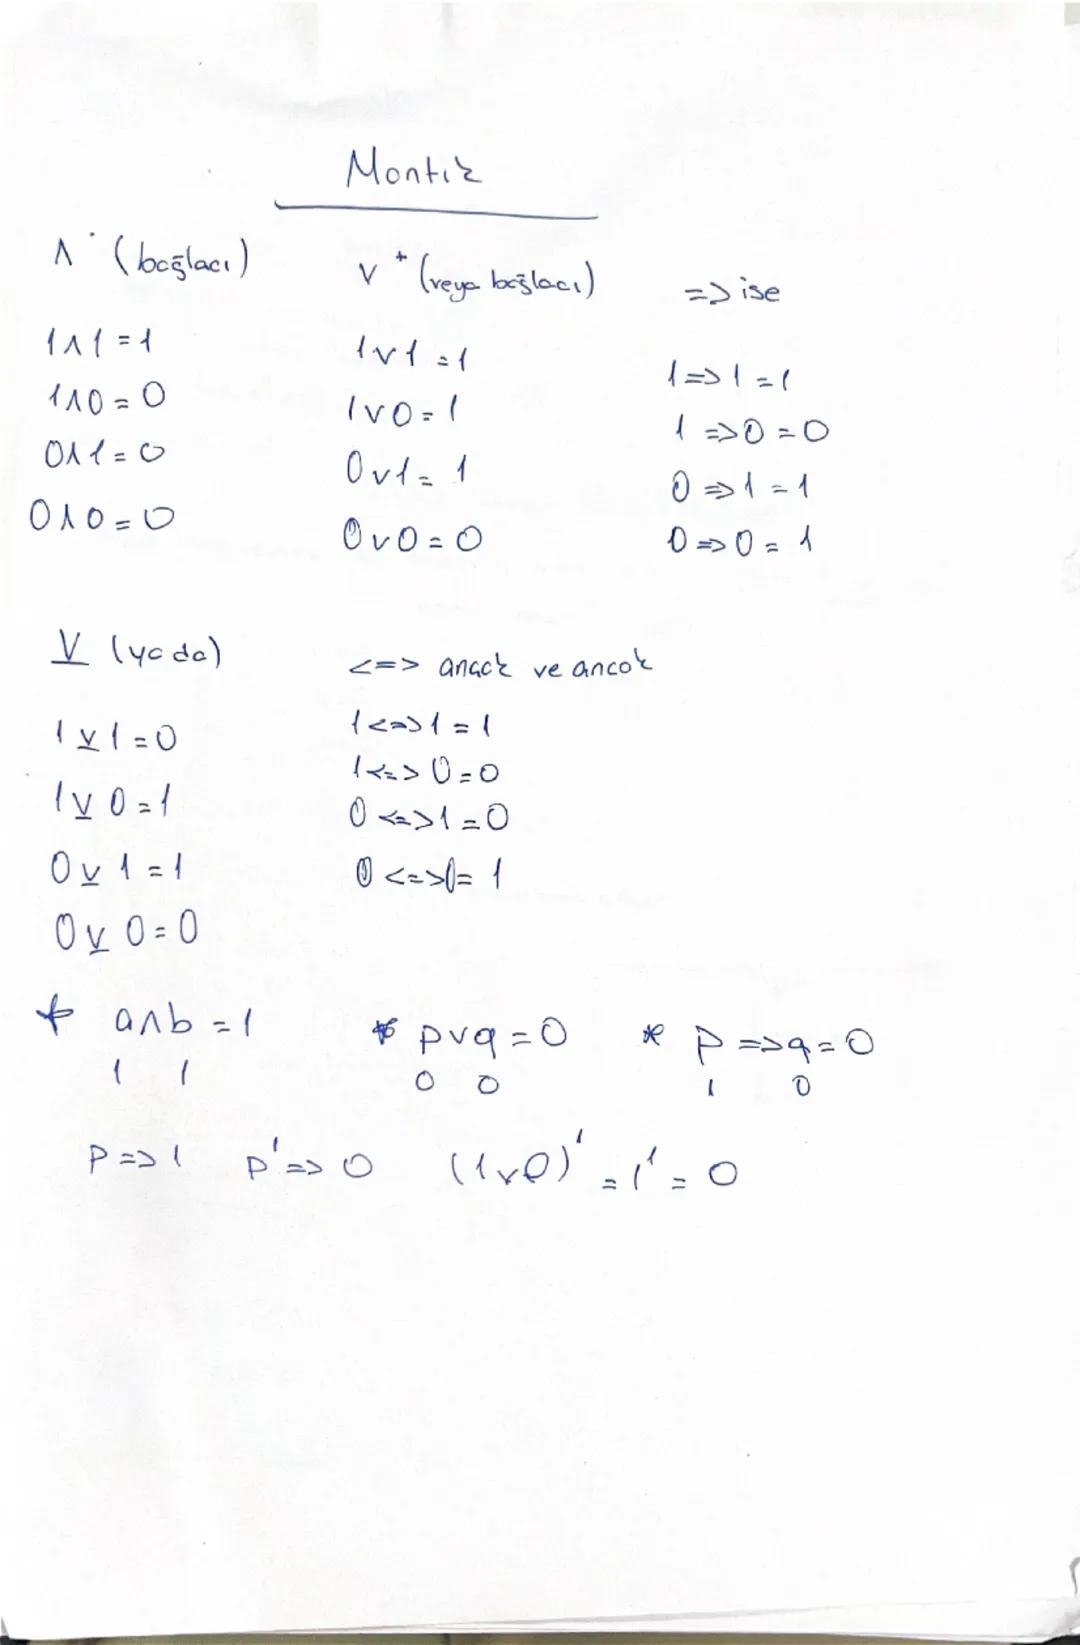 Mantık
∧ · (bağlacı)
1∧1=1
1∧0=0
0∧1=0
0∧0=0
∨ + (veya bağlacı)
1∨1=1
1∨0=1
0∨1=1
0∨0=0
=> ise
1=>1=1
1=>0=0
0=>1=1
0=>0=1
⊻ (ya da)
1⊻1=0
1⊻0=1
0⊻1=1
0⊻0=0
<=> anack ve ancak
1<=>1=1
1<=>0=0
0<=>1=0
0<=>0=1
* a∧b=1
1 1
* p∨q=0
0 0
* p=>q=0
1 0
p=>1 p'=>0 (1∨0)'=1'=0